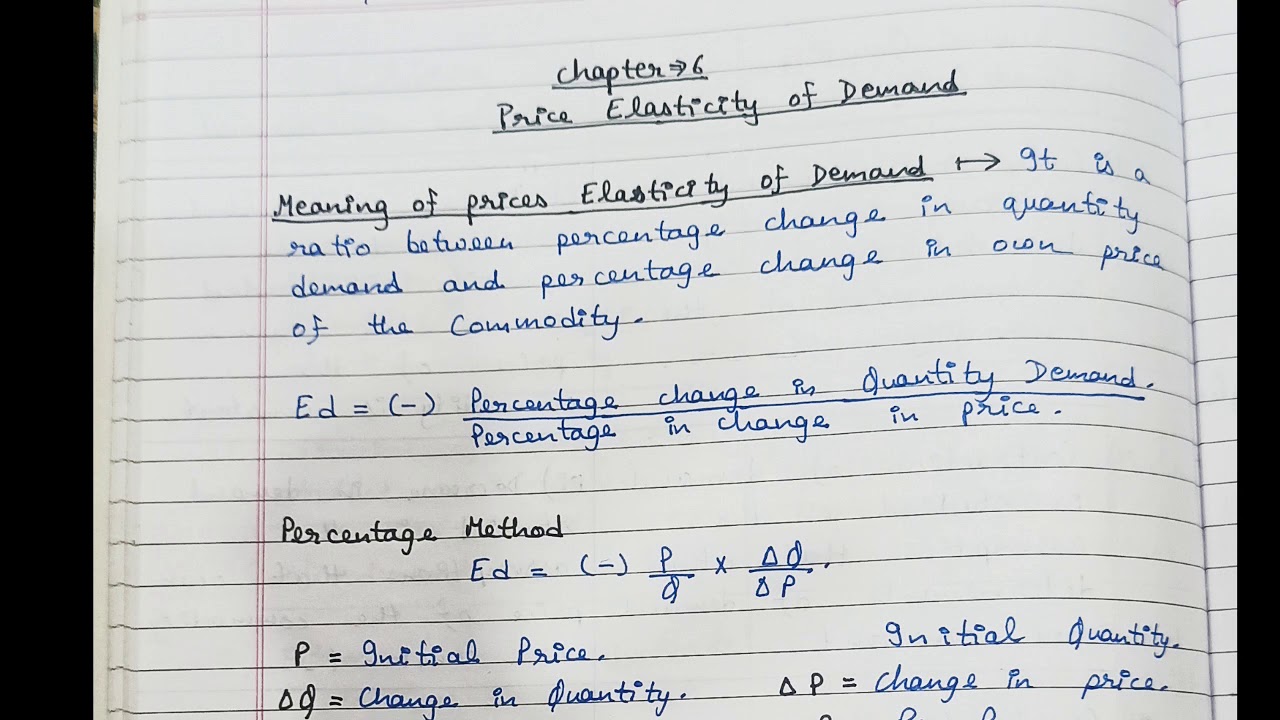 Chapter ⇒ 6
Price Elasticity of Demand
Meaning of prices Elasticity of Demand ↦ It is a
ratio between percentage change in quantity
demand and percentage change in own price
of the Commodity.
Ed = (-) Percentage change in Quantity Demand.
Percentage in change in price.
Percentage Method
Ed = (-) P/Q × ΔQ/ΔP.
P = Initial Price. Initial Quantity.
ΔQ = Change in Quantity. ΔP = Change in price.